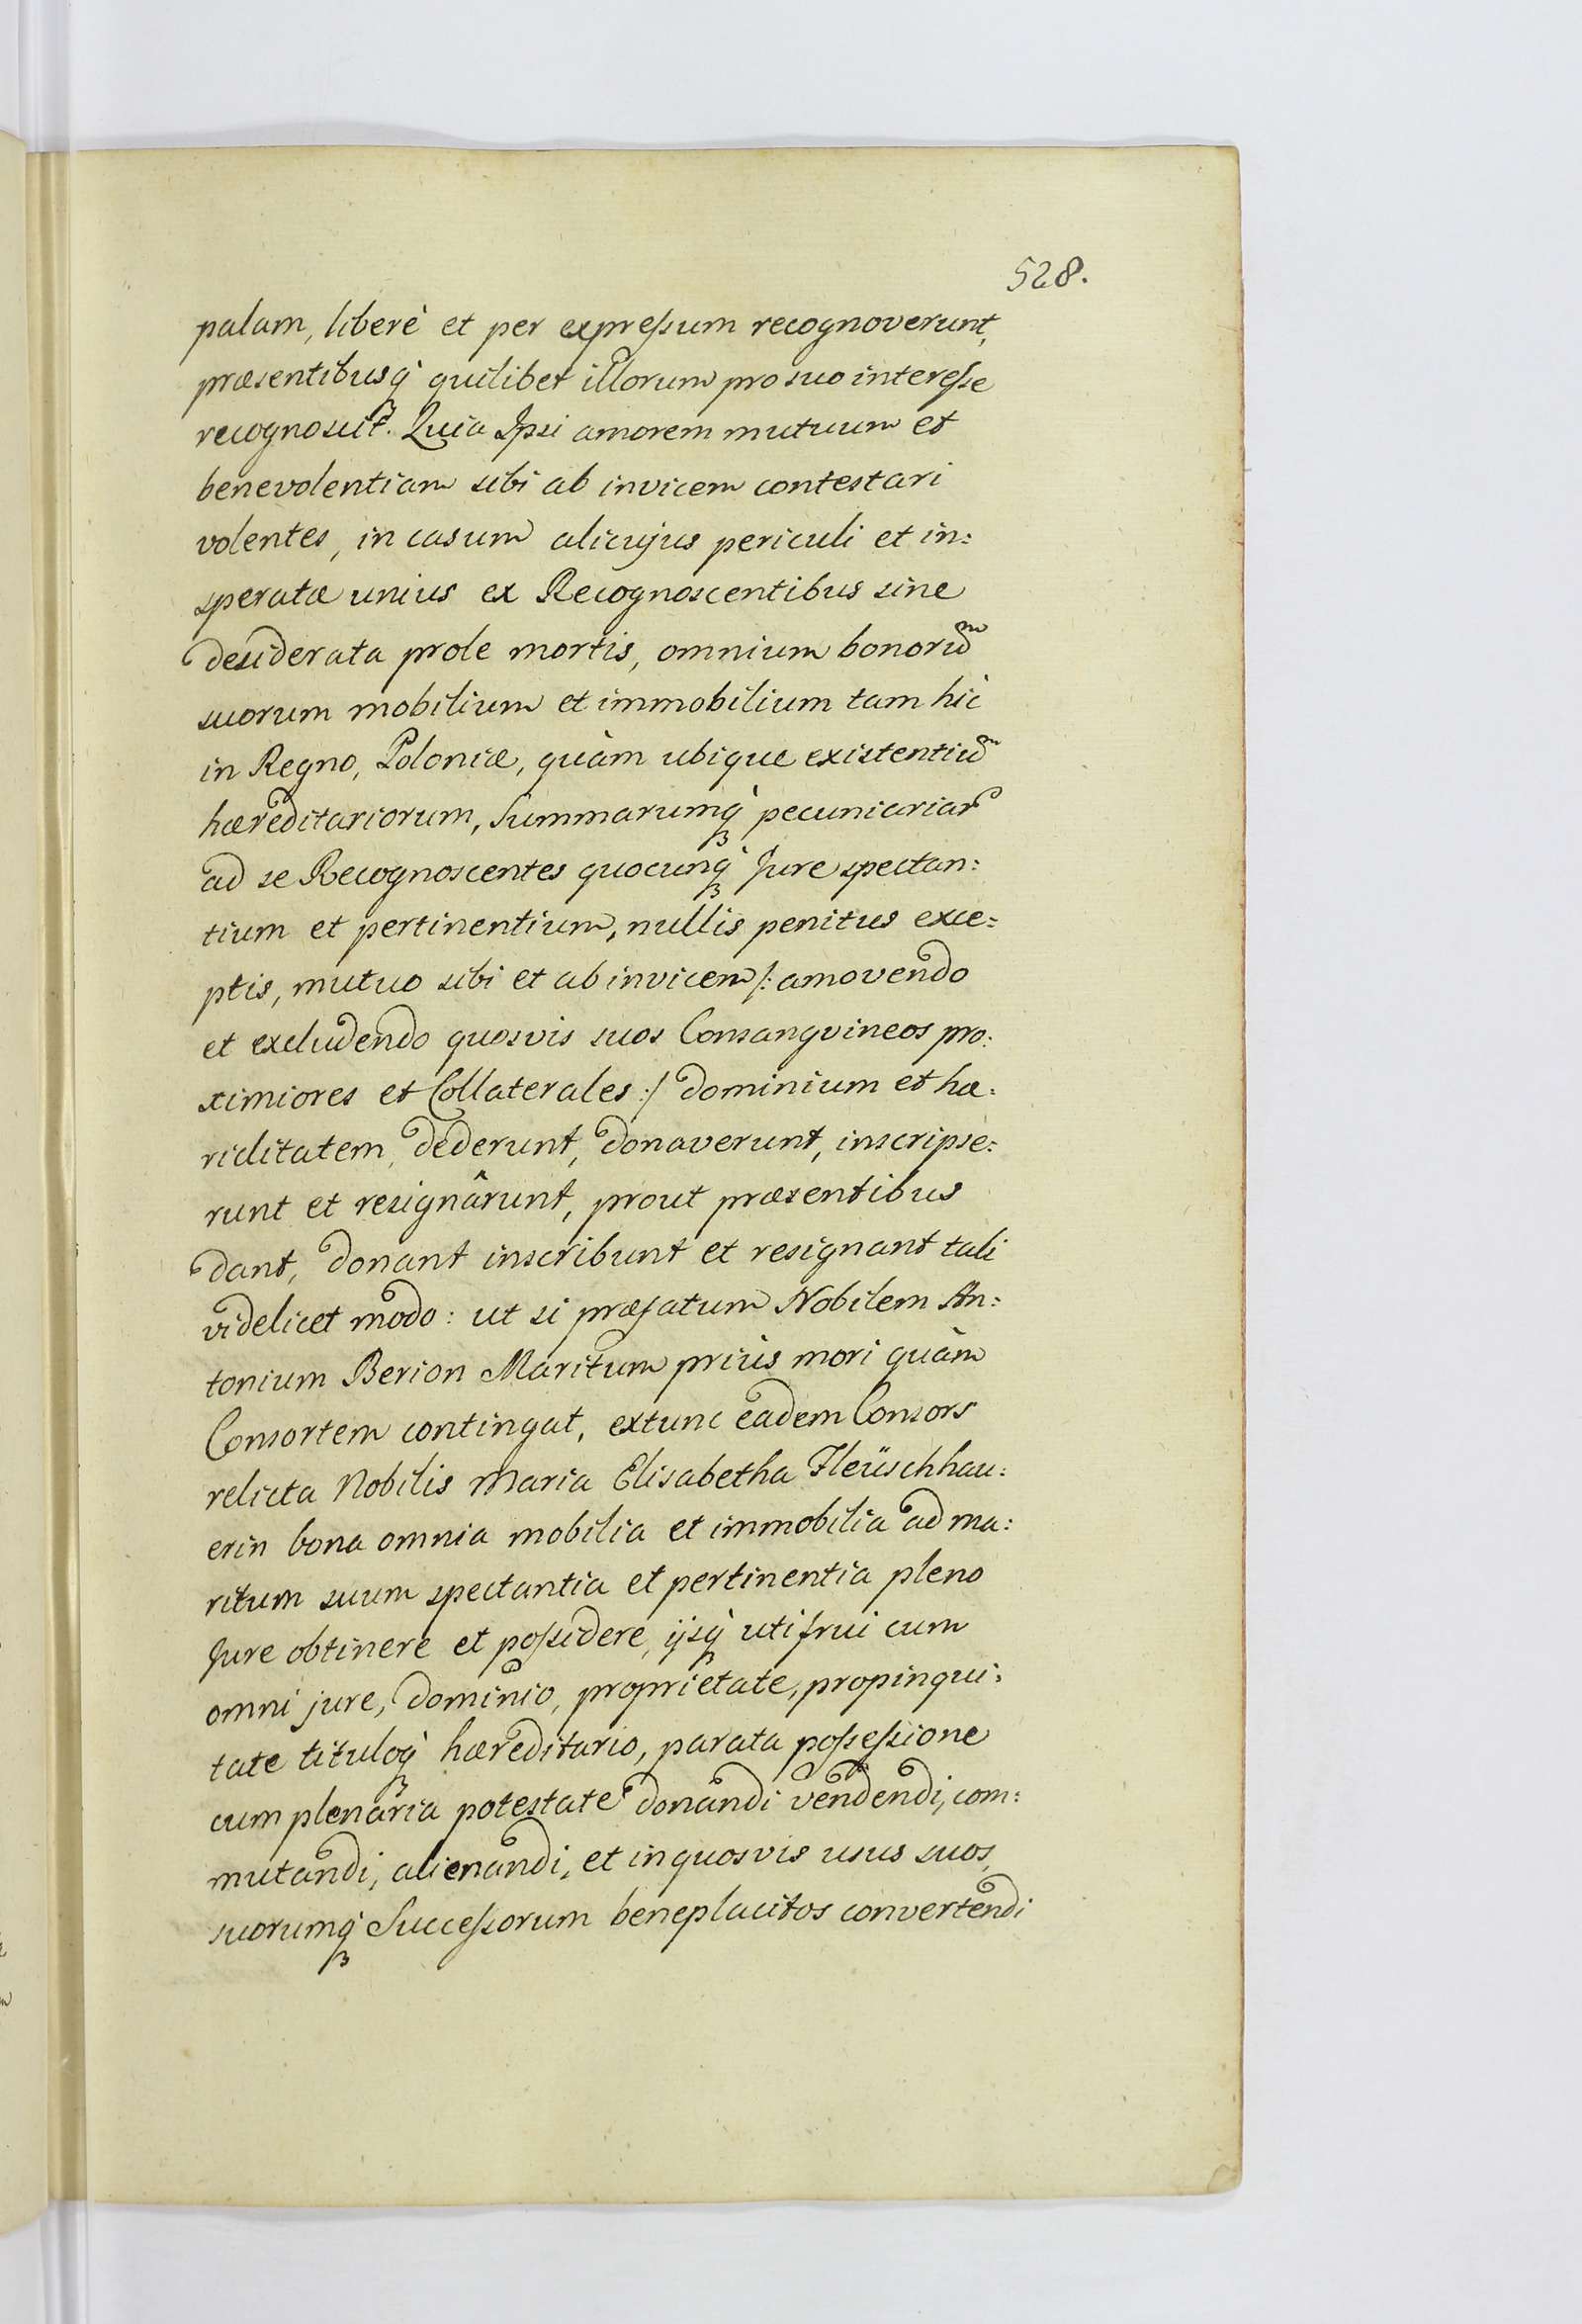 528.
palam, liberè et per expreſsum recognoverunt,
præsentibusq́ꝫ quilibet illorum pro suo intereſse
recognoscit. Quia Ipsi amorem mutuum et
benevolentiam sibi ab invicem contestari
volentes, in casum alicujus periculi et in:
speratæ unius ex Recognoscentibus sine
desiderata prole mortis, omnium bonorum̃
suorum mobilium et immobilium tam hic
in Regno, Poloniæ, quàm ubique existentium̃
hæreditariorum, Summarumq́ꝫ pecuniariar
ad se Recognoscentes quocunq́ꝫ Jure spectan:
tium et pertinentium, nullis penitus exce:
ptis, mutuo sibi et ab invicem /: amovendo
et excludendo quosvis suos Consangvineos pro:
ximiores et Collaterales :/ dominium et hæ:
riditatem, dederunt, donaverunt, inscripse:
runt et resignârunt, prout præsentibus
dant, donant inscribunt et resignant tali
videlicet modo: ut si præfatum Nobilem An:
tonium Berion Maritum priùs mori quàm
Consortem contingat, extunc eadem Consors
relicta Nobilis Maria Elisabetha Fleüschhau:
erin bona omnia mobilia et immobilia ad ma:
ritum suum spectantia et pertinentia pleno
Jure obtinere et poſsidere, ijsq́ꝫ uti frui cum
omni jure, dominio, proprietate, propinqui:
tate tituloq́ꝫ hæreditario, parata poſseſsione
cum plenaria potestate donandi vendendi, com:
mutandi, alienandi, et in quosvis usus suos,
suorumq́ꝫ Succeſsorum beneplacitos convertendi